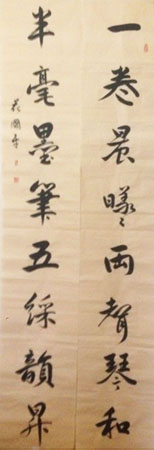 一卷晨曦両聲琴和
半毫墨筆五綵韻昇